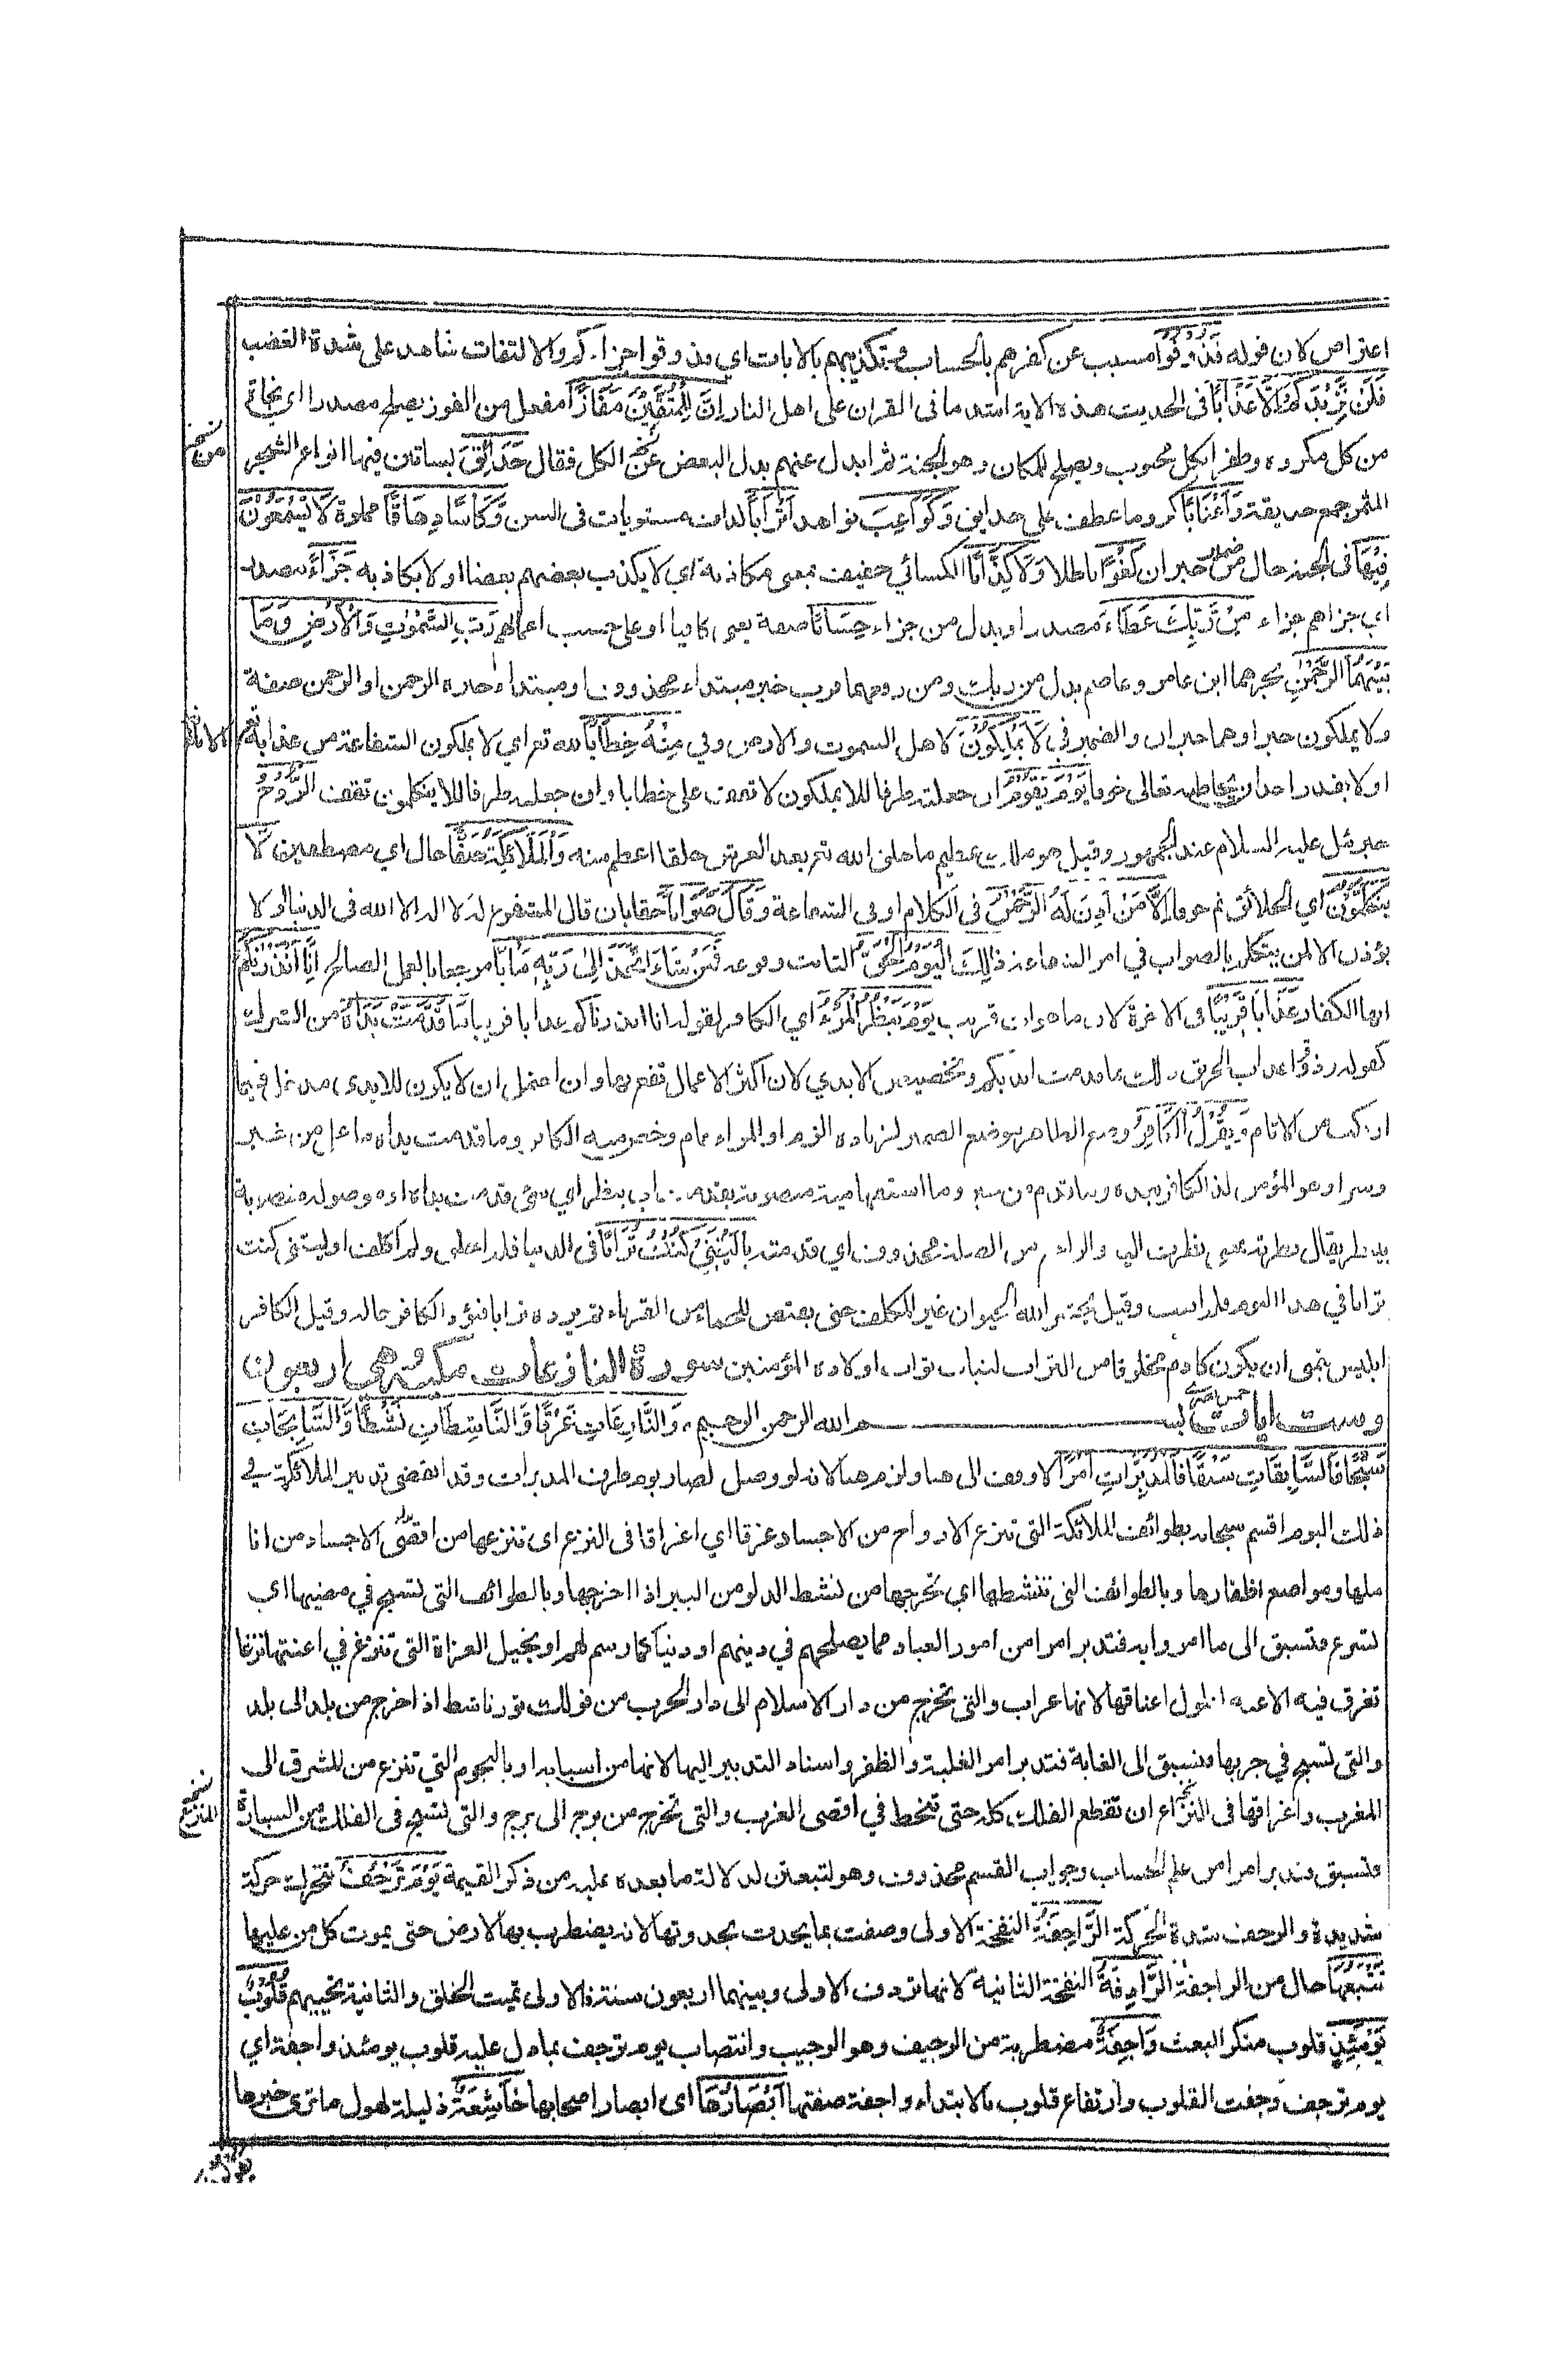 اعتراض لان قوله فَذُوقُوا مسبب عن كفرهم بالحساب وتكذيبهم بالايات اي فذوقوا جزاءكم والالتفات شاهد على شدة الغضب
فَلَنْ نَّزِيْدَكُمْ اِلَّا عَذَابًا فى الحديث هذه الاية اشد ما فى القران على اهل النار اِنَّ لِلْمُتَّقِيْنَ مَفَازًا مفعل من الفوز يصلح مصدرا اى نجاة
من كل مكروه وظفرا بكل محبوب ويصلح للمكان وهو الجنة ثم ابدل عنهم بدل البعض عن الكل فقال حَدَائِقَ بساتين فيها انواع الشجر
المثمر جمع حديقة وَاَعْنَابًا كروما عطف على حدايق وَكَوَاعِبَ نواهد اَتْرَابًا لدات مستويات فى السن وَكَأْسًا دِهَاقًا مملوة لَا يَسْمَعُوْنَ
فِيْهَا فى الجنة حال من خبر ان لَغْوًا باطلا وَلَا كِذَّابًا الكسائي خفيف بمعنى مكاذبة اي لا يكذب بعضهم بعضا او لا يكاذبه جَزَاءً مصدر
اي جزاهم جزاء مِنْ رَّبِّكَ عَطَاءً مصدر او بدل من جزاء حِسَابًا صفة بمعنى كافيا او على حسب اعمالهم رَبِّ السَّمٰوٰتِ وَالْاَرْضِ وَمَا
بَيْنَهُمَا الرَّحْمٰنِ بجرهما ابن عامر وعاصم بدل من ربك ومن رفعهما فرب خبر مبتداء محذوف او مبتداء خبره الرحمن او الرحمن صفة
ولا يملكون خبر او هما خبران والضمير في لَا يَمْلِكُوْنَ لاهل السموت والارض وفي مِنْهُ خِطَابًا لله تع اي لا يملكون الشفاعة من عذابه
او لا يقدر احد ان يخاطبه تعالى خوفا يَوْمَ يَقُوْمُ ان جعلته ظرفا للا يملكون لا تقف على خطابا وان جعلته ظرفا للا يتكلمون تقف الرُّوْحُ
جبرئيل عليه السلام عند الجمهور وقيل هو ملك عظيم ما خلق الله تع بعد العرش خلقا اعظم منه وَالْمَلَائِكَةُ صَفًّا حال اي مصطفين لَّا
يَتَكَلَّمُوْنَ اي الخلائق ثم خوفا اِلَّا مَنْ اَذِنَ لَهُ الرَّحْمٰنُ فى الكلام او فى الشفاعة وَقَالَ صَوَابًا حقا بان قال المشفوع له لا اله الا الله فى الدنيا او لا
يؤذن الا لمن يتكلم بالصواب في امر الشفاعة ذٰلِكَ الْيَوْمُ الْحَقُّ الثابت وقوعه فَمَنْ شَاءَ اتَّخَذَ اِلٰى رَبِّهٖ مَاٰبًا مرجعا بالعمل الصالح اِنَّا اَنْذَرْنٰكُمْ
ايها الكفار عَذَابًا قَرِيْبًا فى الاخرة لان ما هو ات قريب يَوْمَ يَنْظُرُ الْمَرْءُ اي الكافر لقوله انا انذرناكم عذابا قريبا مَا قَدَّمَتْ يَدَاهُ من الشرك
كقوله وذوقوا عذاب الحريق ذلك بما قدمت ايديكم وتخصيص الايدي لان اكثر الاعمال تقع بها وان احتمل ان لا يكون للايدي مدخل فيما
ارتكب من الاثام وَيَقُوْلُ الْكَافِرُ وضع الظاهر موضع الضمير لزيادة الذم او المرء عام وخص منه الكافر وما قدمت يداه ما عمل من خير
وشر او هو المؤمن لذكر الكافر بعده وما قدم من خير وما استفهامية منصوبة بقدمت اي ينظر اي شيء قدمت يداه او موصولة منصوبة
بينظر يقال نظرته بمعنى نظرت اليه والراجع من الصلة محذوف اي قدمته يَا لَيْتَنِيْ كُنْتُ تُرَابًا فى الدنيا فلم اخلق ولم اكلف او ليتني كنت
ترابا في هذا اليوم فلم ابعث وقيل يحشر الله الحيوان غير المكلف حتى يقتص للجماء من القرناء ثم يرده ترابا فيود الكافر حاله وقيل الكافر
ابليس يتمنى ان يكون كادم مخلوقا من التراب ليثاب ثواب اولاده المؤمنين سورة النازعات مكية وهي اربعون
وست ايات بســـــم الله الرحمن الرحيم وَالنَّازِعَاتِ غَرْقًا وَّالنَّاشِطَاتِ نَشْطًا وَّالسَّابِحَاتِ
سَبْحًا فَالسَّابِقَاتِ سَبْقًا فَالْمُدَبِّرَاتِ اَمْرًا لا وقف الى هنا ولزم هنا لانه لو وصل لصار يوم ظرف المدبرات وقد انقضى تدبير الملائكة في
ذلك اليوم اقسم سبحانه بطوائف الملائكة التى تنزع الارواح من الاجساد غرقا اي اغراقا فى النزع اى تنزعها من اقصى الاجساد من انا
ملها ومواضع اظفارها وبالطوائف التى تنشطها اي تخرجها من نشط الدلو من البير اذا اخرجها وبالطوائف التى تسبح في مضيها اى
تسرع فتسبق الى ما امروا به فتدبر امرا من امور العباد مما يصلحهم في دينهم او دنياهم كما رسم لهم او بخيل الغزاة التى تنزع في اعنتها نزعا
تغرق فيه الاعنة لطول اعناقها لانها عراب والتى تخرج من دار الاسلام الى دار الحرب من قولك ثور ناشط اذا خرج من بلد الى بلد
والتى تسبح في جريها فتسبق الى الغاية فتدبر امر الغلبة والظفر واسناد التدبير اليها لانها من اسبابه او بالنجوم التي تنزع من المشرق الى
المغرب واغراقها فى النزع ان تقطع الفلك كله حتى تنحط في اقصى الغرب والتى تخرج من برج الى برج والتى تسبح فى الفلك من السيارة
فتسبق فتدبر امرا من علم الحساب وجواب القسم محذوف وهو لتبعثن لدلالة ما بعده عليه من ذكر القيمة يَوْمَ تَرْجُفُ تتحرك حركة
شديدة والرجف شدة الحركة الرَّاجِفَةُ النفخة الاولى وصفت بما يحدث بحدوثها لانه يضطرب بها الارض حتى يموت كل من عليها
تَتْبَعُهَا حال من الراجفة الرَّادِفَةُ النفخة الثانية لانها تردف الاولى وبينهما اربعون سنة فالاولى تميت الخلق والثانية تحييهم قُلُوْبٌ
يَّوْمَئِذٍ قلوب منكر البعث وَاجِفَةٌ مضطربة من الوجيف وهو الوجيب وانتصاب يوم ترجف بما دل عليه قلوب يومئذ واجفة اي
يوم ترجف وجفت القلوب وارتفاع قلوب بالابتداء واجفة صفتها اَبْصَارُهَا اى ابصار اصحابها خَاشِعَةٌ ذليلة لهول ما ترى خبرها